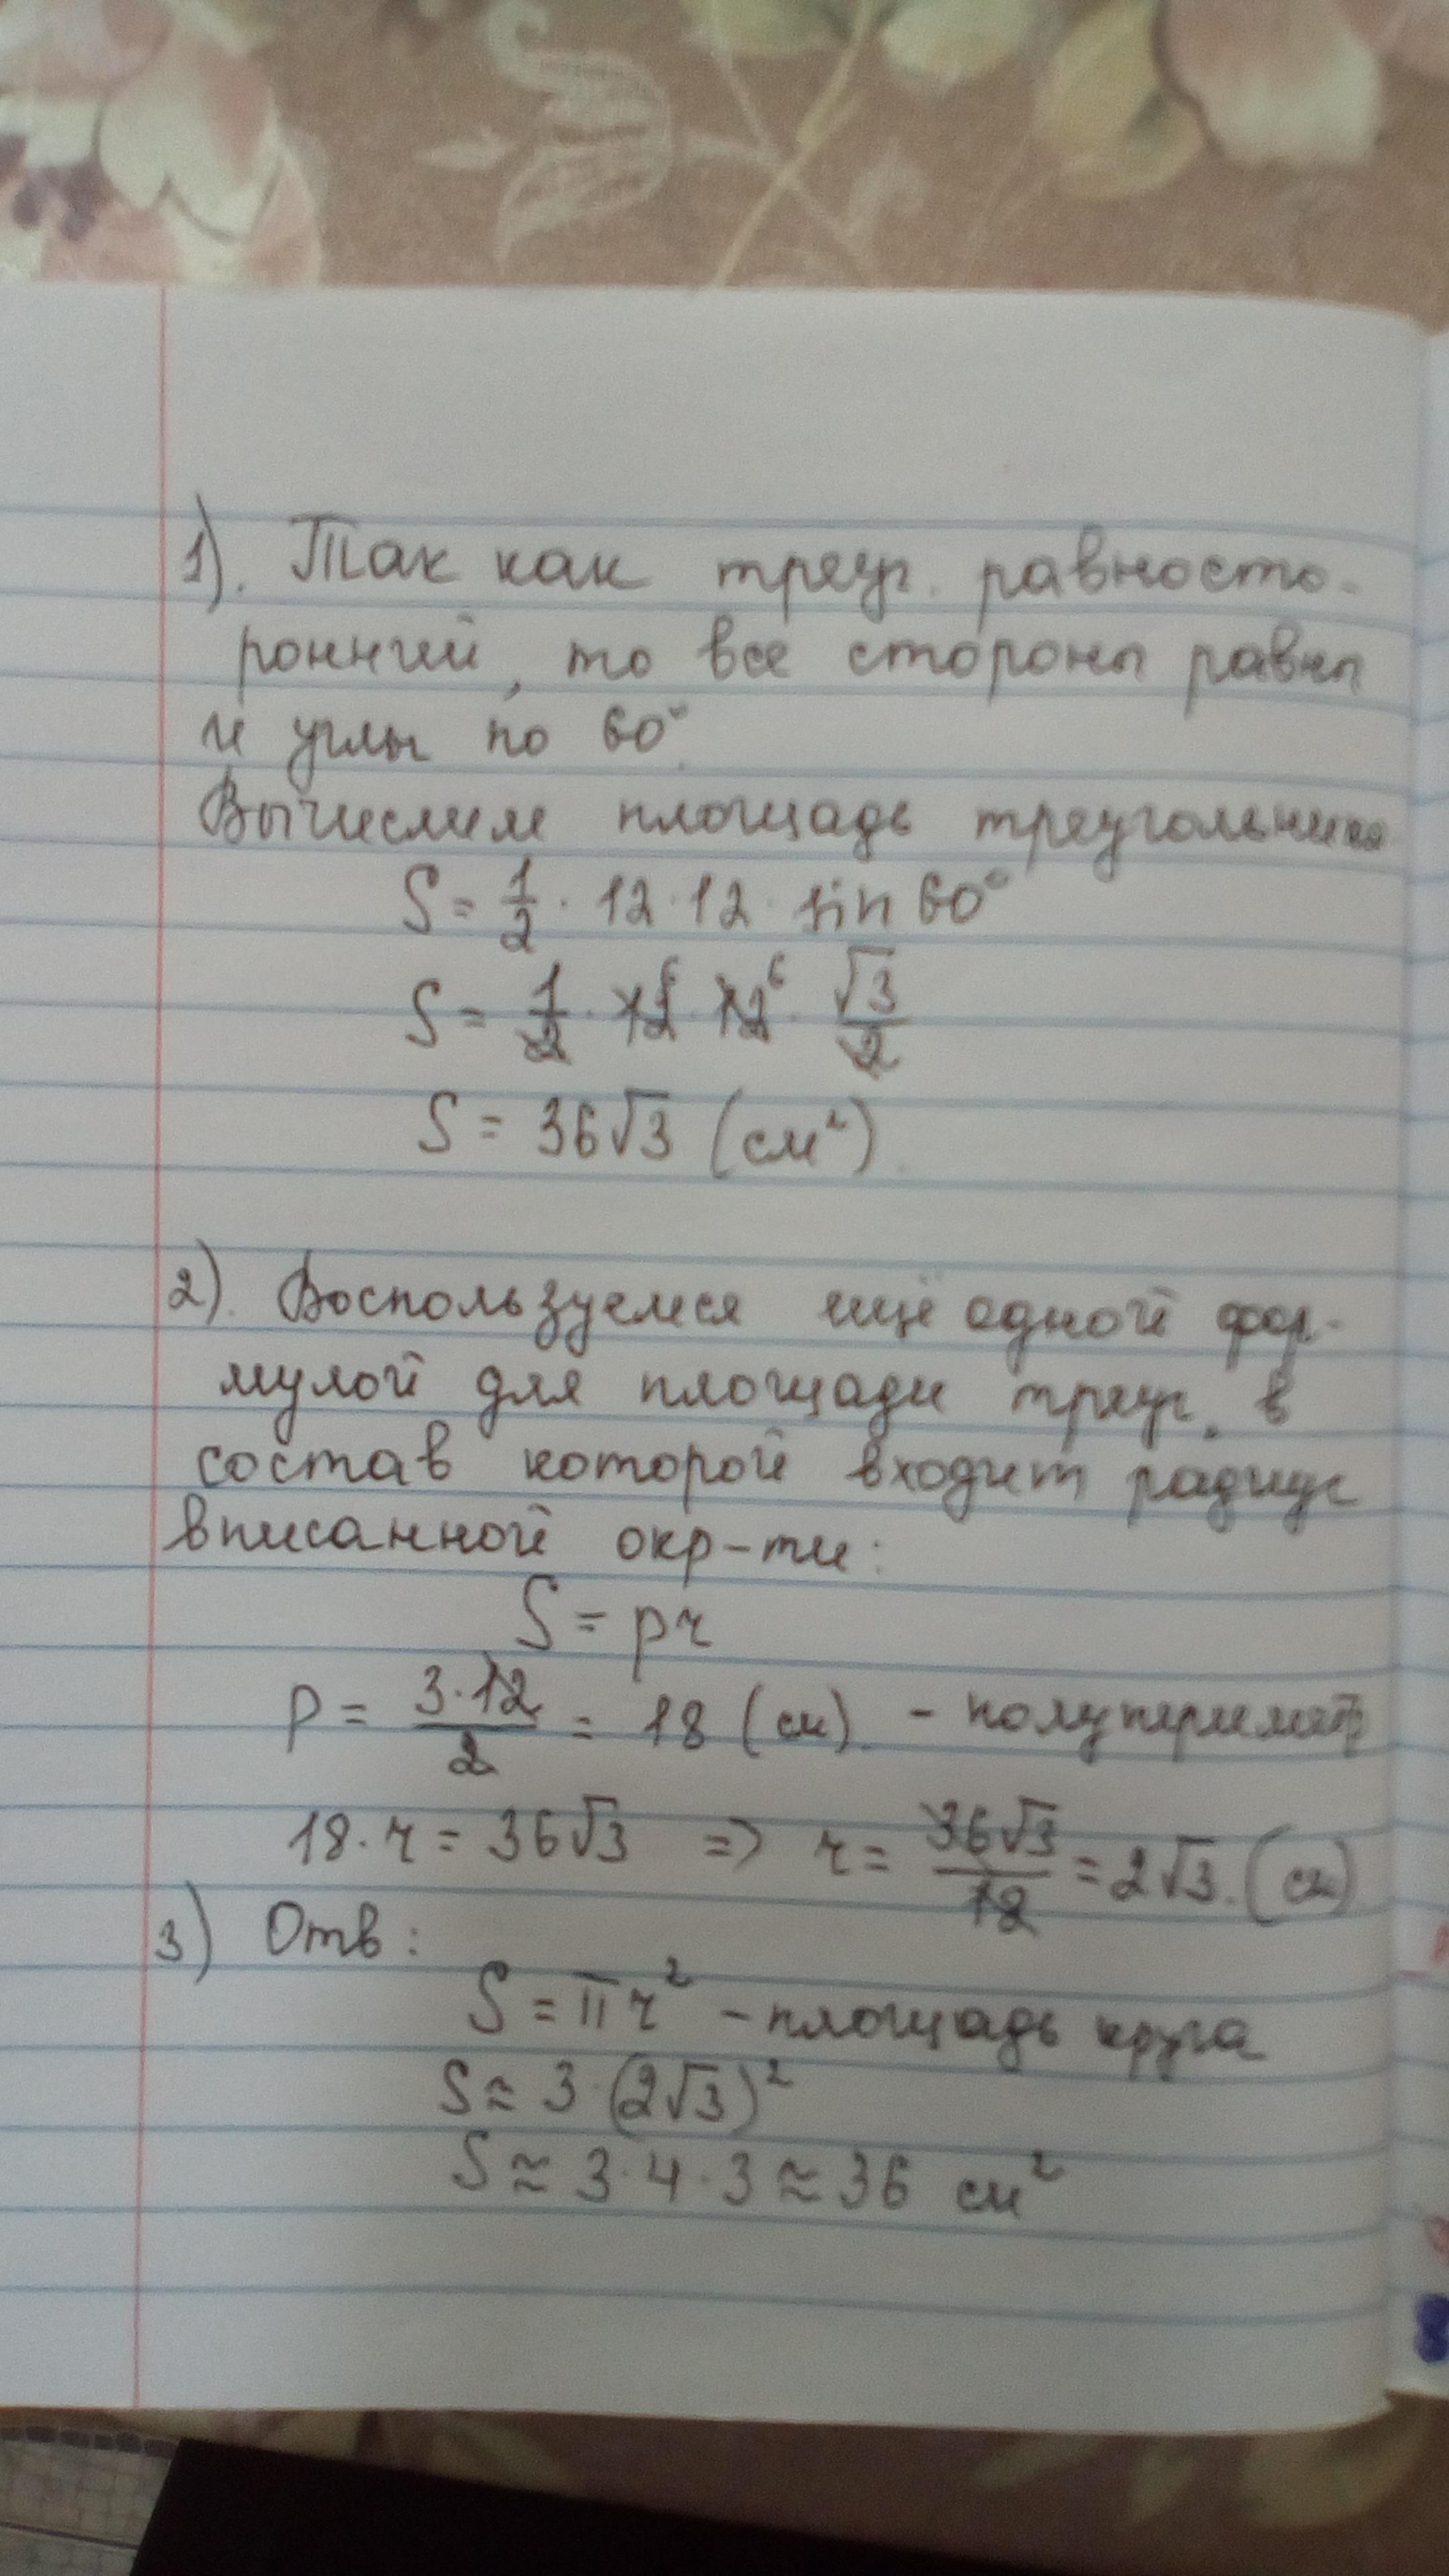 1). Так как треуг. равносто-
ронний, то все стороны равны
и углы по 60°.
Вычислим площадь треугольника
S = 1/2 · 12 · 12 · sin 60°
S = 1/2 · 12⁶ · 12⁶ · √3/2
S = 36√3 (см²).
2). Воспользуемся ещё одной фор-
мулой для площади треуг., в
состав которой входит радиус
вписанной окр-ти:
S = pr
p = 3·12/2 = 18 (см). - полупериметр
18·r = 36√3 => r = 36√3/18 = 2√3. (см)
3) Отв:
S = πr² - площадь круга
S ≈ 3·(2√3)²
S ≈ 3·4·3 ≈ 36 см²